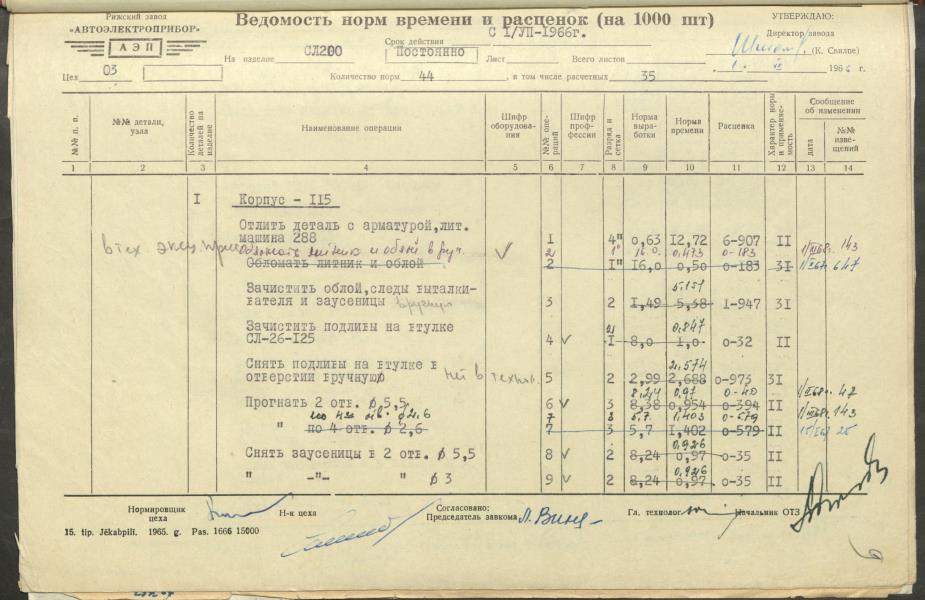 Рижский завод
"АВТОЭЛЕКТРОПРИБОР"
АЭП
Ведомость норм времени и расценок (на 1000 шт)
С I/УП-1966г.
УТВЕРЖДАЮ:
Директор завода
(К. Свилпе)
1966 г.
На изделие СЛ200
Срок действия Постоянно
Лист
Всего листов
Цех 03
Количество норм 44, в том числе расчетных 35
№№ п. п. №№ детали, узла Количество деталей на изделие Наименование операции Шифр оборудования №№ операций Шифр профессии Разряд и сетка Норма выработки Норма времени Расценка Характер норм и применяемость Сообщение об изменении дата №№ извещений
1 2 3 4 5 6 7 8 9 10 11 12 13 14
I Корпус - II5
Отлить деталь с арматурой, лит.
машина 288 I 4" 0,63 I2,72 6-907 II
в тех. 2 1" 16.0 0,473 0-183 143
Обломать литник и облой 2 I" I6,0 0,50 0-I83 3I 647
5.151
Зачистить облой, следы выталки-
вателя и заусеницы вручную 3 2 I,49 5,38 I-947 3I
0.847
Зачистить подливы на втулке
СЛ-26-I25 4 I 8,0 I,0 0-32 II
2.574
Снять подливы на втулке в
отверстии вручную нет в технол. 5 2 2,99 2,688 0-973 3I
8,24 0,97 0-40 42
Прогнать 2 отв. ø 5,5 6 3 8,38 0,954 0-394 II
ø 2.6 7 3 5.7 1,403 0-579 143
" по 4 отв. ø 2,6 7 3 5,7 I,402 0-579 II 25
0.926
Снять заусеницы в 2 отв. ø 5,5 8 2 8,24 0,97 0-35 II
0.926
" -"- " ø 3 9 2 8,24 0,97 0-35 II
Нормировщик цеха
Н-к цеха
Согласовано:
Председатель завкома
Гл. технолог
Начальник ОТЗ
15. tip. Jēkabpilī. 1965. g. Pas. 1666 15000